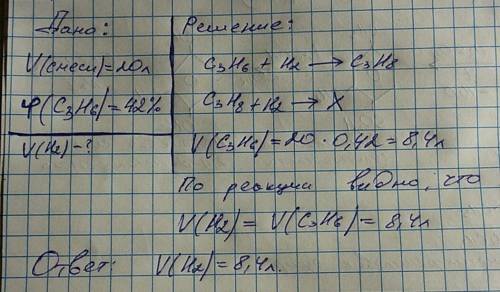 Дано:
V(смеси)=20л
φ(C3H6)=42%
V(H2)-?
Решение:
C3H6 + H2 ⟶ C3H8
C3H8+H2 → X
V(C3H6)=20·0,42=8,4л
По реакции видно, что
V(H2)=V(C3H6)=8,4л
Ответ: V(H2)=8,4л.